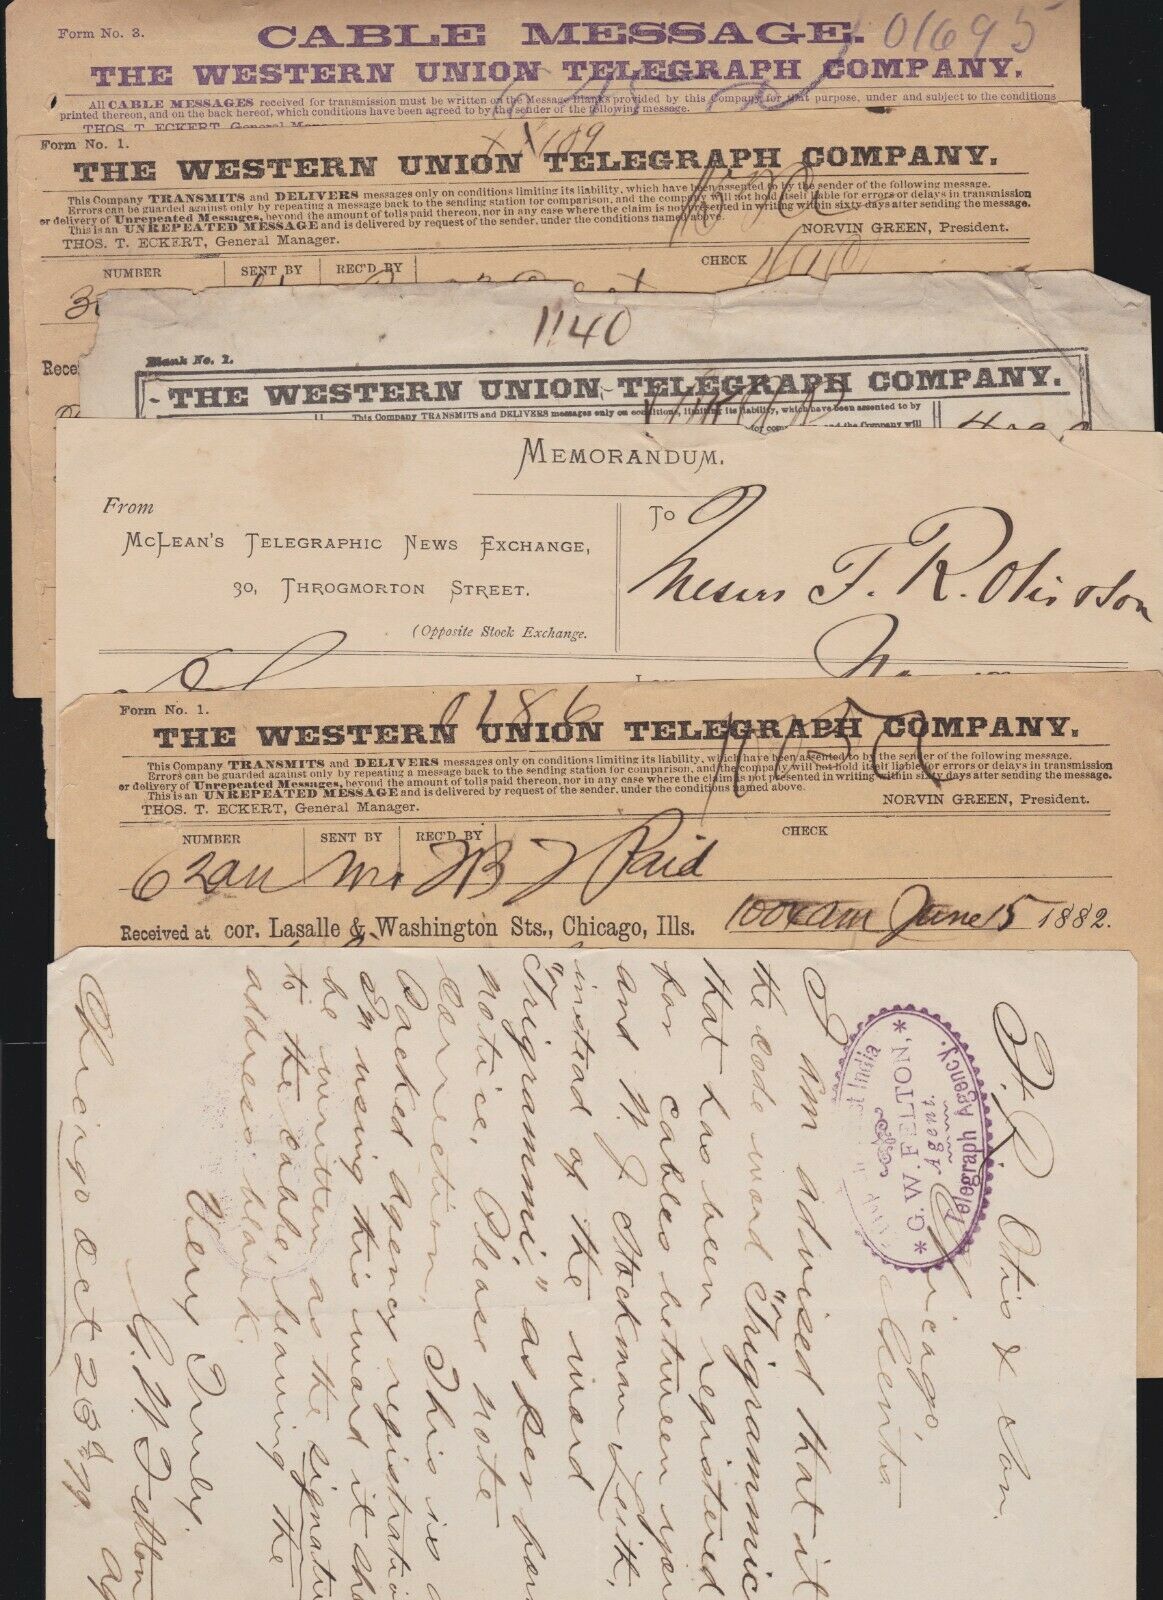 Form No. 3.
CABLE MESSAGE.
01695
THE WESTERN UNION TELEGRAPH COMPANY.
All CABLE MESSAGES received for transmission must be written on the Message Blanks provided by this Company for that purpose, under and subject to the conditions
printed thereon, and on the back hereof, which conditions have been agreed to by the sender of the following message.
THOS. T. ECKERT, General
Form No. 1.
THE WESTERN UNION TELEGRAPH COMPANY.
This Company TRANSMITS and DELIVERS messages only on conditions limiting its liability, which have been assented to by the sender of the following message.
Errors can be guarded against only by repeating a message back to the sending station for comparison, and the company will not hold itself liable for errors or delays in transmission
or delivery of Unrepeated Messages, beyond the amount of tolls paid thereon, nor in any case where the claim is not presented in writing within sixty days after sending the message.
This is an UNREPEATED MESSAGE and is delivered by request of the sender, under the conditions named above.
THOS. T. ECKERT, General Manager. NORVIN GREEN, President.
NUMBER SENT BY REC'D BY CHECK
1140
Blank No. 1.
THE WESTERN UNION TELEGRAPH COMPANY.
This Company TRANSMITS and DELIVERS messages only on conditions, limiting its liability, which have been assented to by
Rece
MEMORANDUM.
From
MCLEAN'S TELEGRAPHIC NEWS EXCHANGE,
30, THROGMORTON STREET.
(Opposite Stock Exchange.
To
Messrs F. R. Otis & Son
Form No. 1.
0186
THE WESTERN UNION TELEGRAPH COMPANY.
This Company TRANSMITS and DELIVERS messages only on conditions limiting its liability, which have been assented to by the sender of the following message.
Errors can be guarded against only by repeating a message back to the sending station for comparison, and the company will not hold itself liable for errors or delays in transmission
or delivery of Unrepeated Messages, beyond the amount of tolls paid thereon, nor in any case where the claim is not presented in writing within sixty days after sending the message.
This is an UNREPEATED MESSAGE and is delivered by request of the sender, under the conditions named above.
THOS. T. ECKERT, General Manager. NORVIN GREEN, President.
NUMBER SENT BY REC'D BY CHECK
62 Paid
Received at cor. Lasalle & Washington Sts., Chicago, Ills. 1004am June 15 1882.
F. R. Otis & Son.
Chicago,
India
* G. W. FELTON, *
Agent.
Telegraph Agency.
I am advised that it
the code word "Trigrammic"
that has been registered
for cables between you
and W. J. Stockman Leith,
instead of the word
"Trigrammi," as per
notice. Please note
correction. This is a
Packed agency registratio
In using this word it sho
be written as the signatu
to the cable, leaving the
address blank.
Very Truly.
G. W. Felton
Chicago Oct 23d